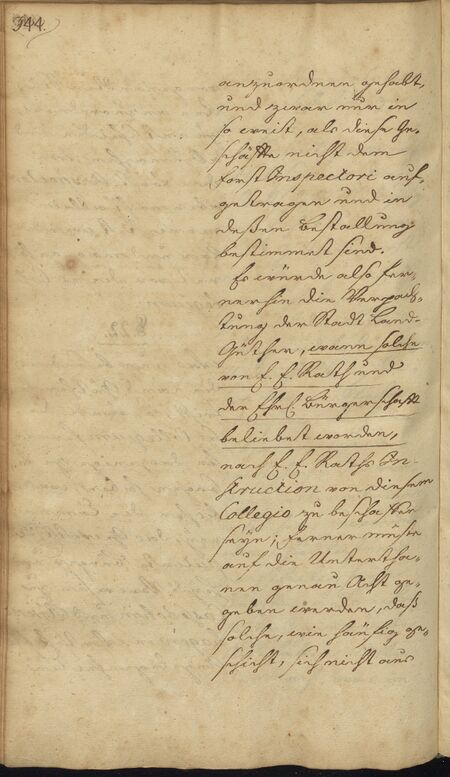 344.
anzuordnen gehabt,
und zwar nur in
so weit, als diese Ge-
schäffte nicht dem
Forst Inspectori auf-
getragen und in
deßen Bestallung
bestimmet sind.
Es würde also fer-
nerhin die Verpach-
tung der Stadt Land-
Güther, wann solche
von E. E. Rath und
der Ehrl. Bürgerschafft
beliebet worden,
nach E. E. Raths In-
struction von diesem
Collegio zu beschaffen
seyn; ferner müste
auf die Untertha-
nen genau Acht ge-
geben werden, daß
solche, wie häufig ge-
schieht, sich nicht aus